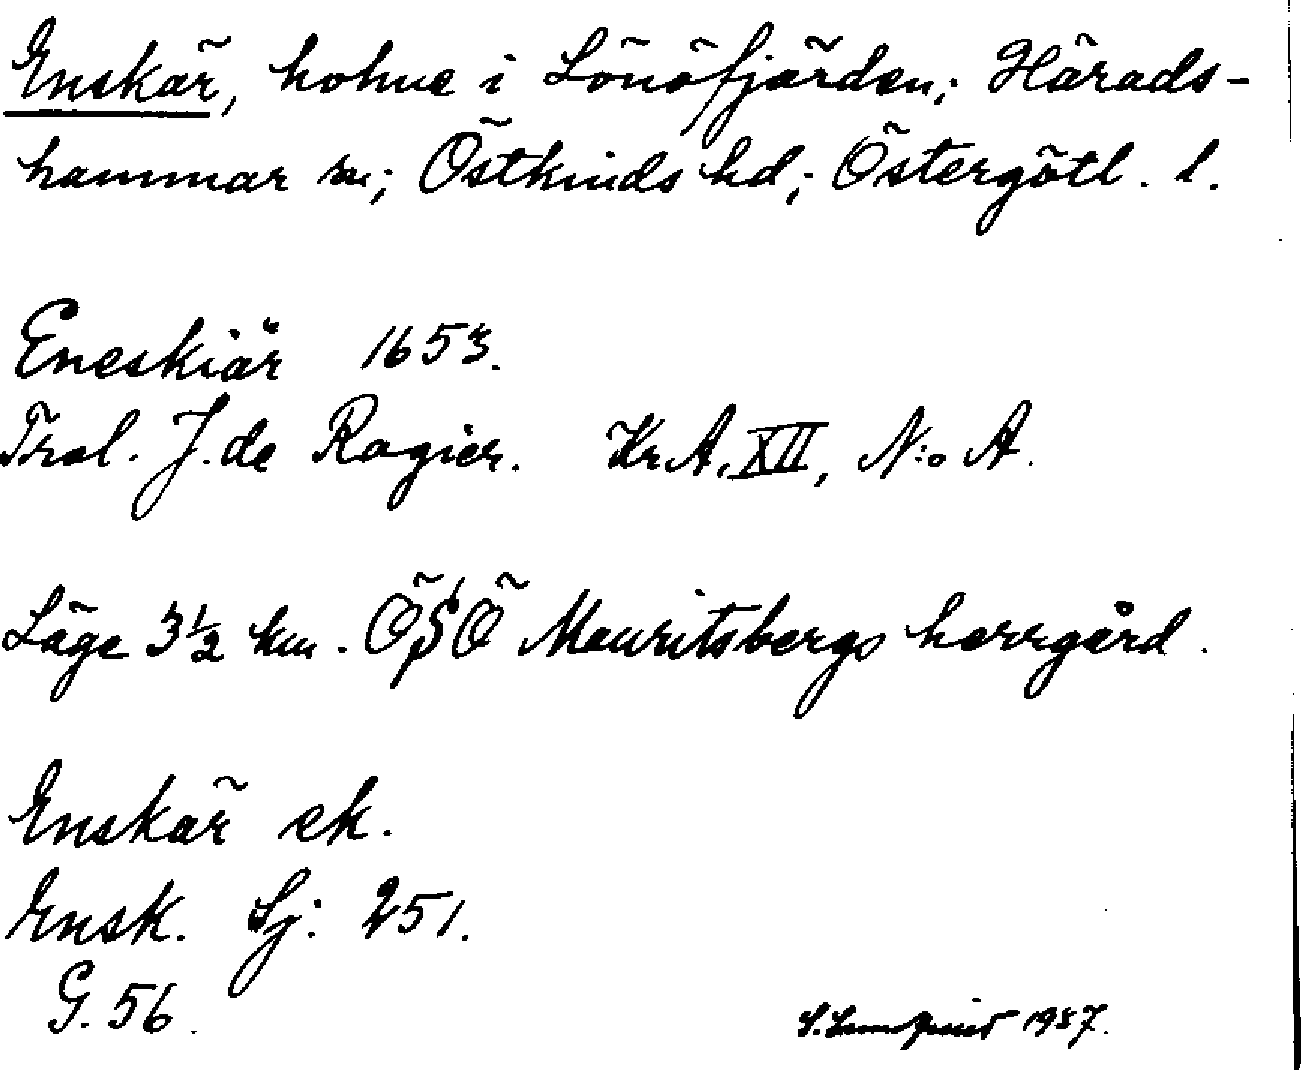 Enskär, holme i Lönöfjärden; Härads-
hammar sn; Östkinds hd; Östergötl. l.
Eneskiär 1653.
Trol. J. de Rogier. KrA, XII, N:o A.
Läge 3½ km. ÖSÖ Mauritsbergs herrgård.
Enskär ek.
Ensk. Sj: 251.
G. 56.
1987.